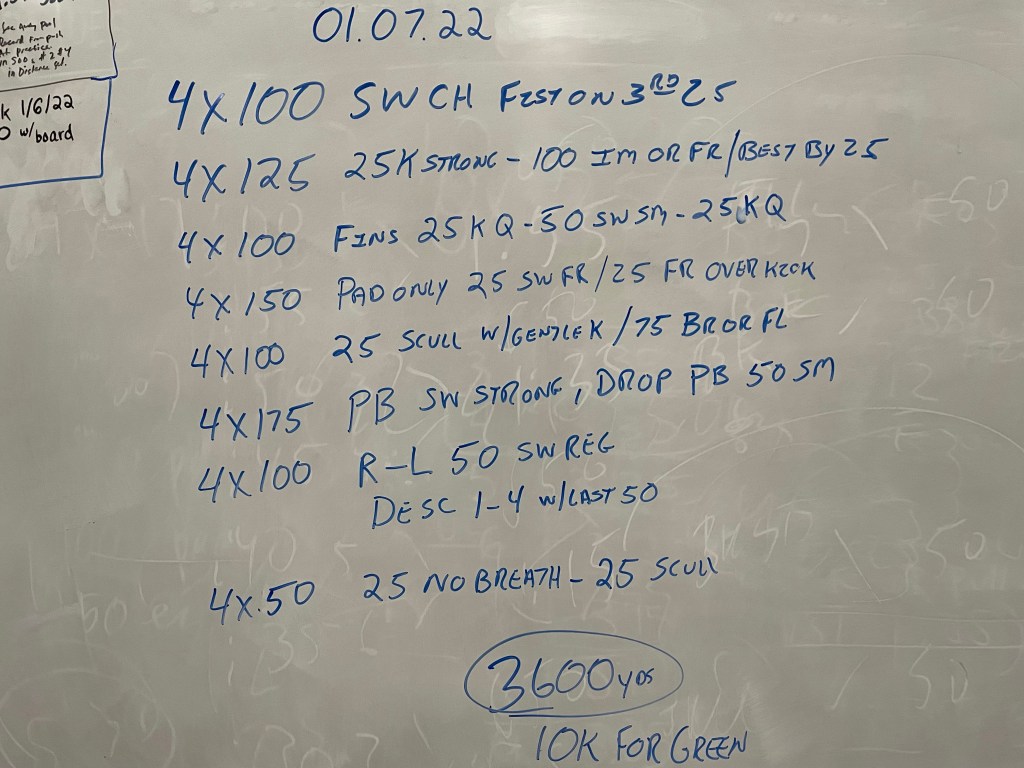 01.07.22
k 1/6/22
w/board
4X100 SWCH FIST ON 3RD 25
4X125 25K STRONG - 100 IM OR FR/BEST BY 25
4X100 FINS 25 KQ - 50 SW SM - 25 KQ
4X150 PAD ONLY 25 SW FR/25 FR OVER KICK
4X100 25 SCULL W/GENTLE K/75 BR OR FL
4X175 PB SW STRONG, DROP PB 50 SM
4X100 R-L 50 SW REG
DESC 1-4 W/LAST 50
4X.50 25 NO BREATH - 25 SCULL
3600 YDS
10K FOR GREEN